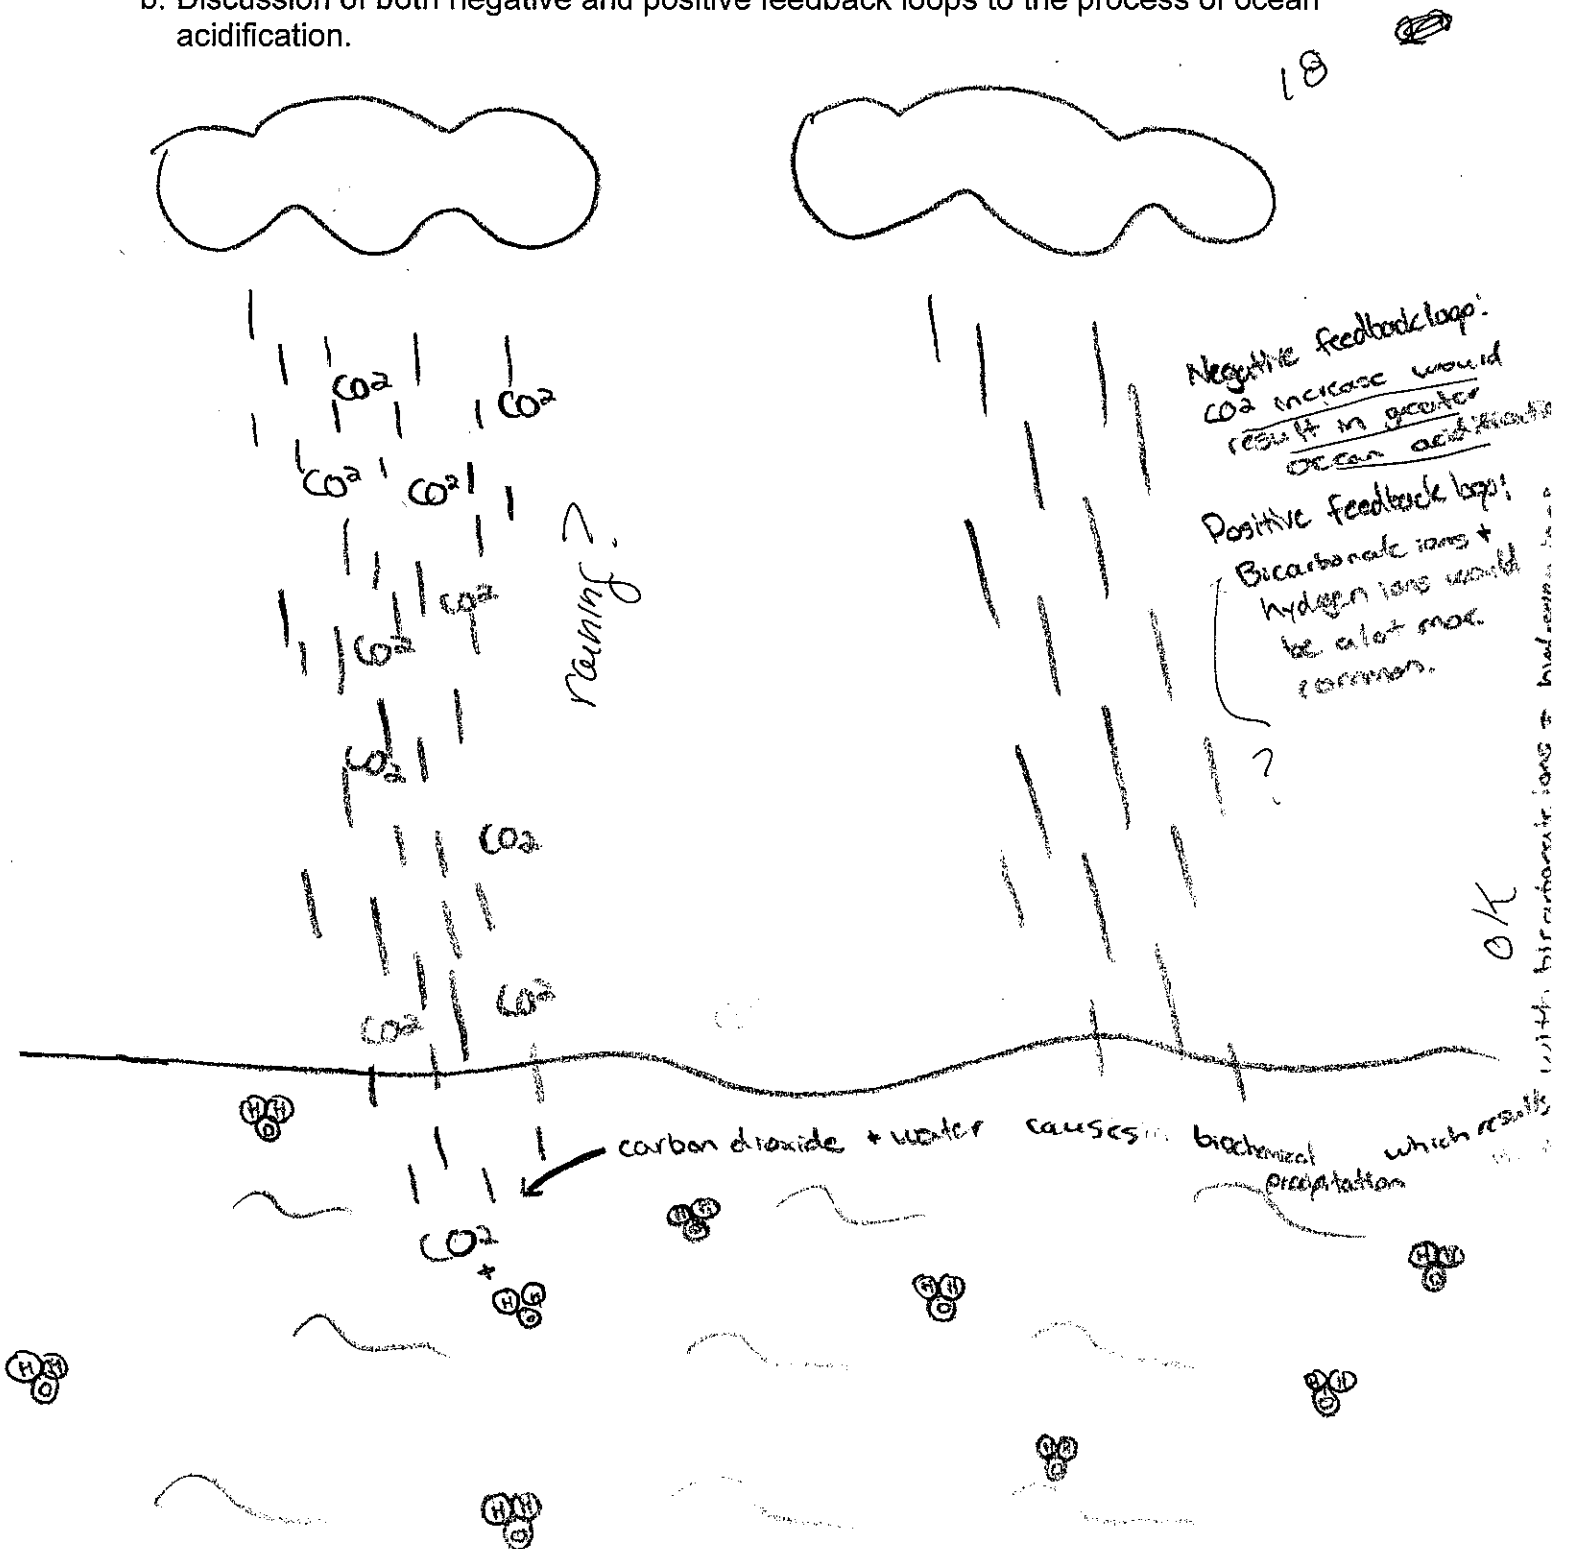 b. Discussion of both negative and positive feedback loops to the process of ocean
acidification.
18
CO2
CO2
CO2
CO2
CO2
CO2
CO2
CO2
CO2
CO2
raining?
Negative feedback loop:
CO2 increase would
result in greater
ocean
Positive feedback loop:
Bicarbonate ions +
hydrogen ions would
be a lot more
common.
?
OK
carbon dioxide + water causes biochemical precipitation which results
with bicarbonate ions +
H H O
H H O
CO2
+
H H O
H H O
H H O
H H O
H H O
H H O
H H O